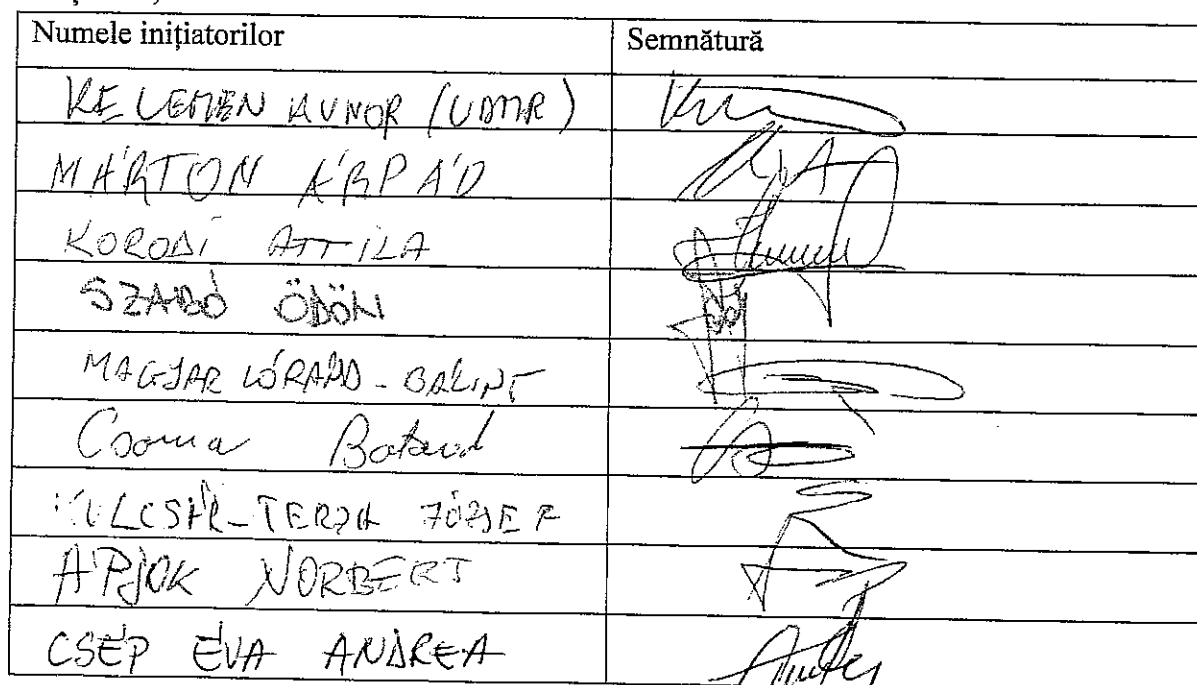 Numele inițiatorilor Semnătură
KELEMEN HUNOR (UDMR)
MÁRTON ÁRPÁD
KORODI ATTILA
SZABÓ ÖDÖN
MAGYAR LÓRÁND-BÁLINT
Csoma Botond
KULCSÁR-TERZA JÓZSEF
APJOK NORBERT
CSÉP ÉVA ANDREA